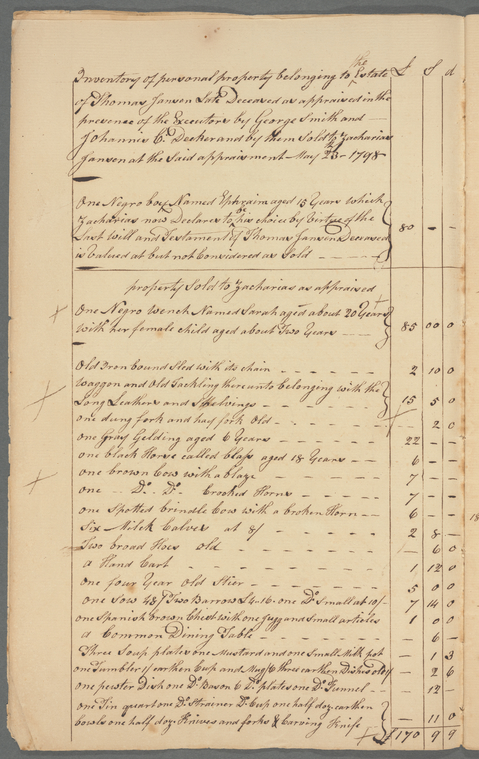 Inventory of personal property belonging to the Estate £ S d
of Thomas Jansen Late Deceased as appraised in the
presence of the Executors by George Smith and
Johannis C. Decker and by them Sold to Zacharias
Jansen at the Said appraisment May 23th 1798
One Negro boy Named Ephraim aged 15 Years which
Zacharias now Declares to be his choice by Virtue of the
Last Will and Testament of Thomas Jansen Deceased
is Valued at but not Considered as Sold - - - - 80 - -
property Sold to Zacharias as appraised
One Negro Wench Named Sarah aged about 20 Years
with her female Child aged about Two Years - - - 85 00 0
Old Iron bound Sled with its chain - - - - 2 10 0
Waggon and Old Tackling thereunto belonging with the
Long Leathers and Shelvings - - - - 15 5 0
one dung fork and hay fork Old - - - - - 2 0
one Gray Gelding aged 6 Years - - - - 22 - -
one black Horse called aged 18 Years - - - 6 - -
one brown Cow with a blaze - - - - 7 - -
one - - Do. - Do. Crooked Horns - - - 7 - -
one Spotted brindle Cow with a broken Horn - - 6 - -
Six - Milck Calves at 8/ - - - - 2 8 -
Two broad Hoes old - - - - - 6 0
a Hand Cart - - - - 1 12 0
one four Year Old Stier - - - - 5 0 0
one Sow 48/ Two Barrows £4-16- one Do. Small at 10/- 7 14 0
one Spanish brown Chest with one Jugg and Small articles 1 0 0
a Common Dining Table - - - - - 6 -
Three Soup plates one Mustard and one Small Milk pot - 1 3
one Tumbler 1/ earthen Cup and Mug 6 three earthen Dishes old - 2 6
one pewter Dish one Do. Bason 6 Do. plates one Do. Funnel - - - 12 -
one Tin quart one Do. Strainer Do. Cup one half doz. earthen
bowls one half doz. Knives and forks & Carving Knife - 11 0
£ 170 9 9